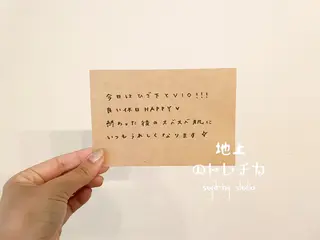 今日は ひざ下とVIO!!!
良い休日 HAPPY♥
終わった後のスベスベ肌に
いつもうれしくなります
地上
のトレチカ